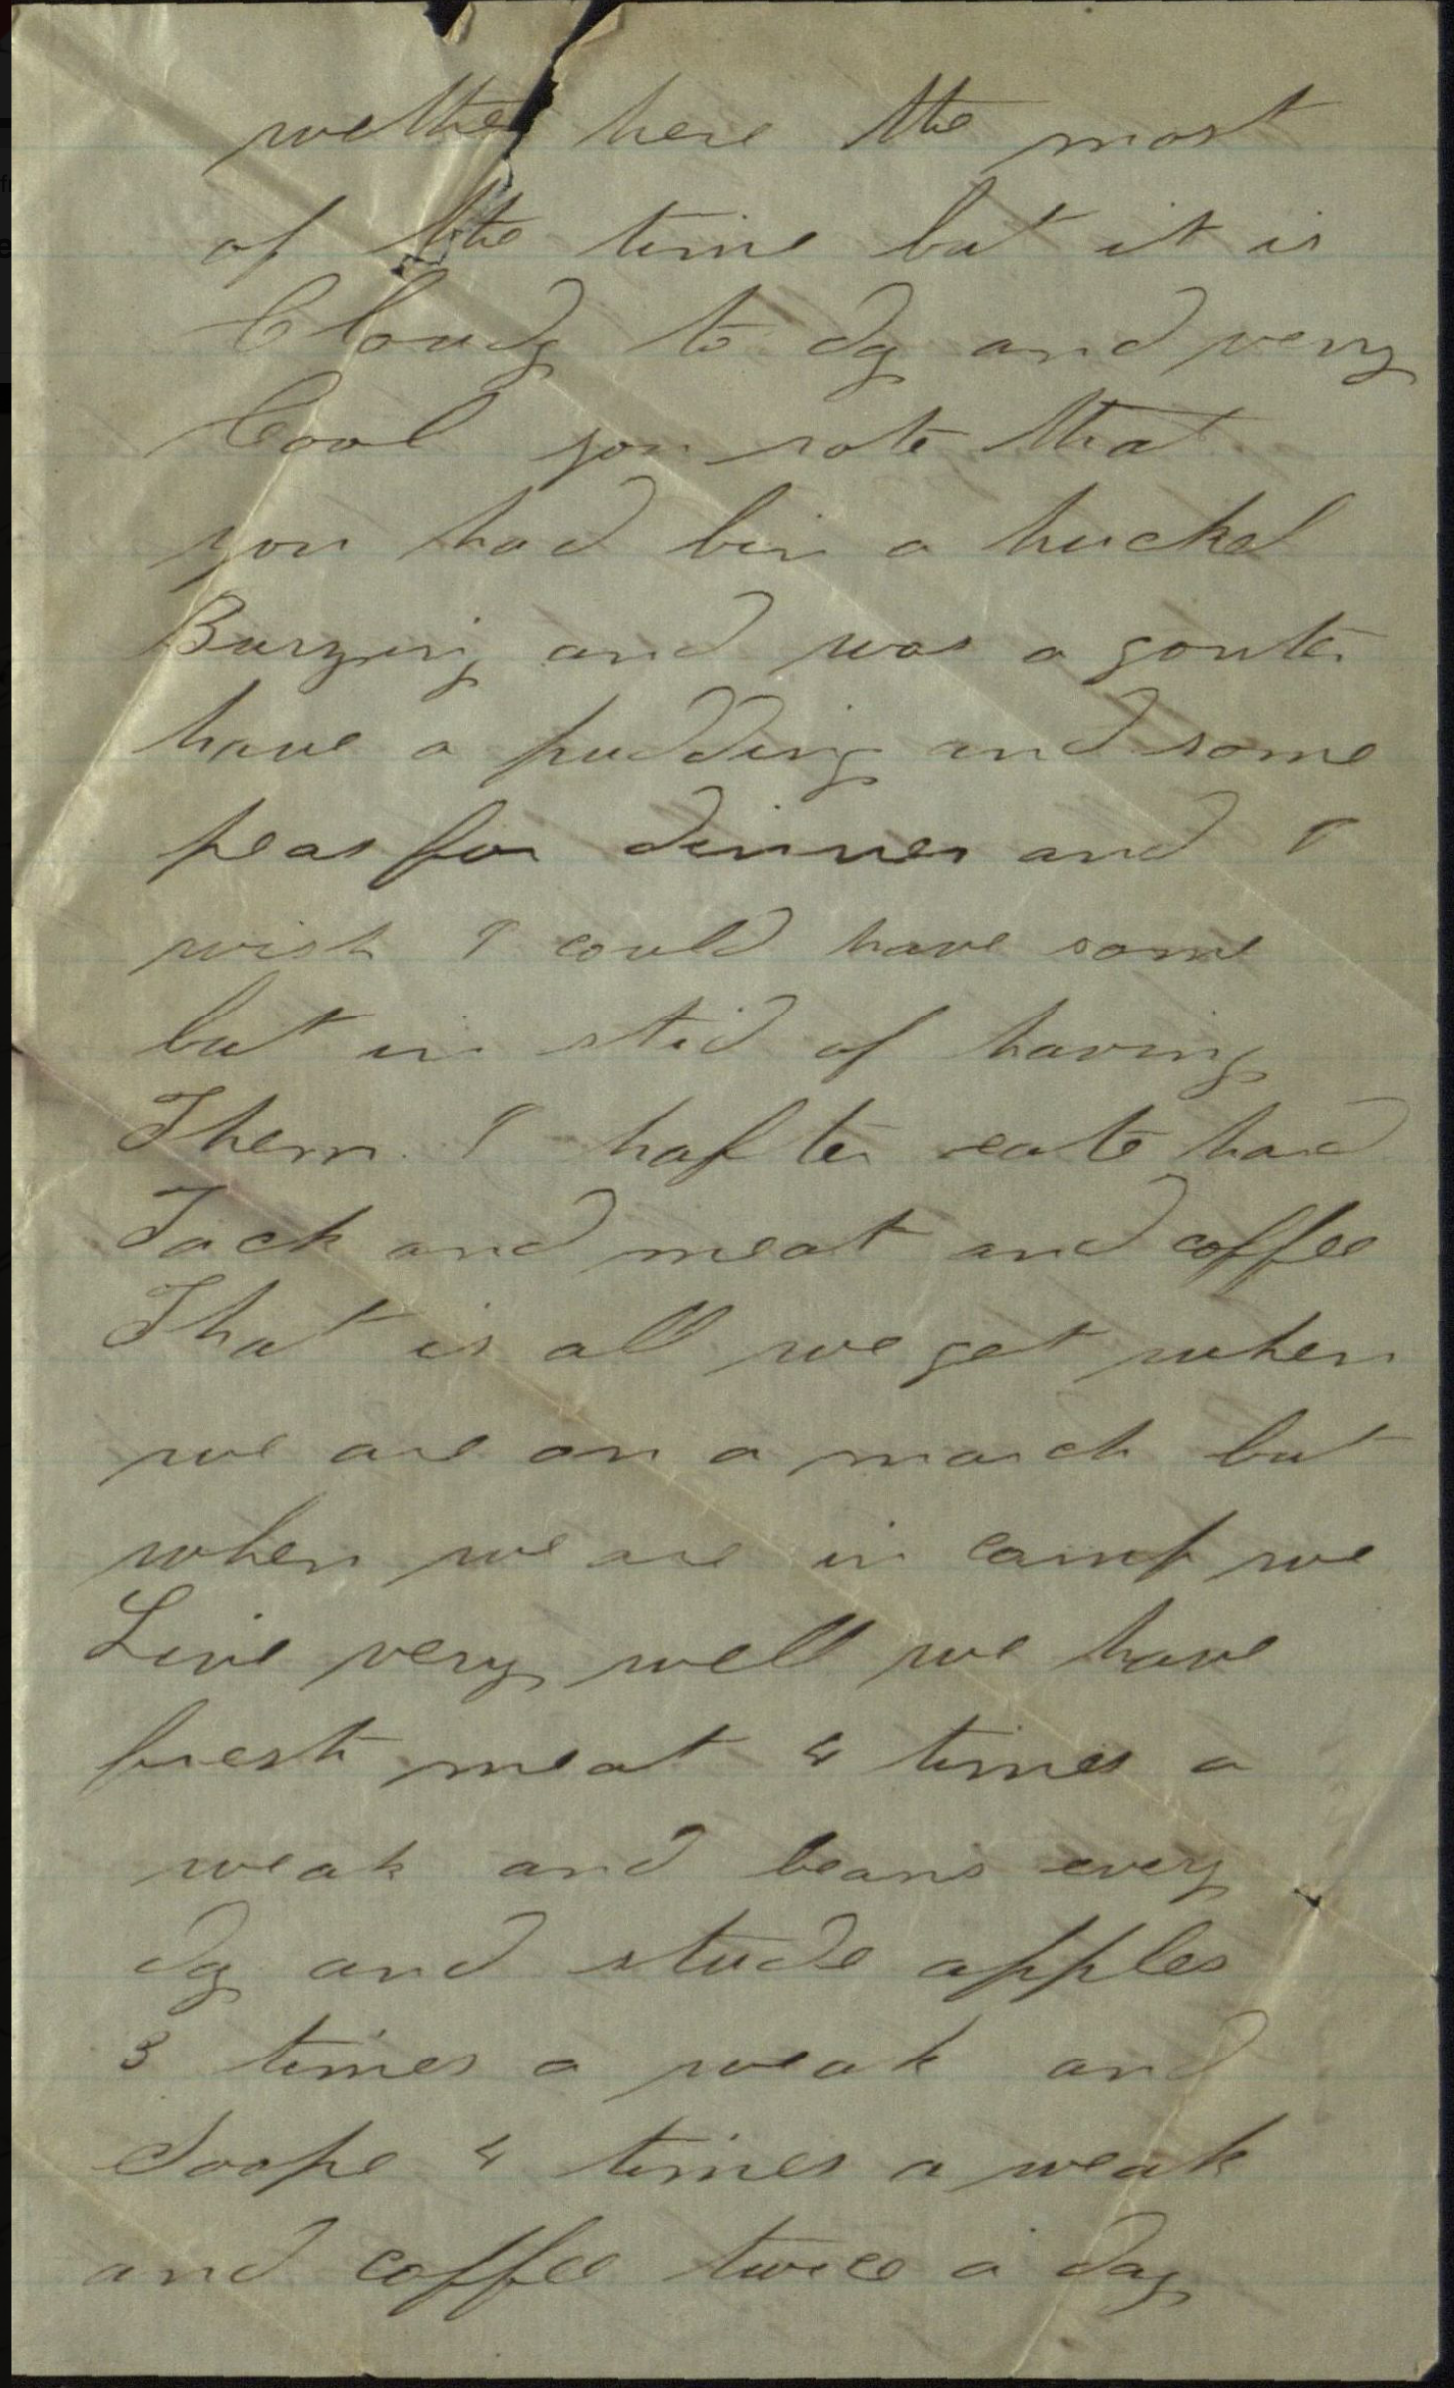 wether here the most
of the time but it is
Cloudy to dy and very
Cool you rote that
you had bin a huckel
Burying and was a gonter
have a pudding and some
peas for dinner and I
wish I could have some
but in stid of having
Them I hafter eate hard
Tack and meat and coffee
That is all we get when
we are on a march but
when we are in camp we
Live very well we have
fresh meat 4 times a
weak and beans every
dy and stude apples
3 times a weak and
Soope 4 times a weak
and coffee twice a day